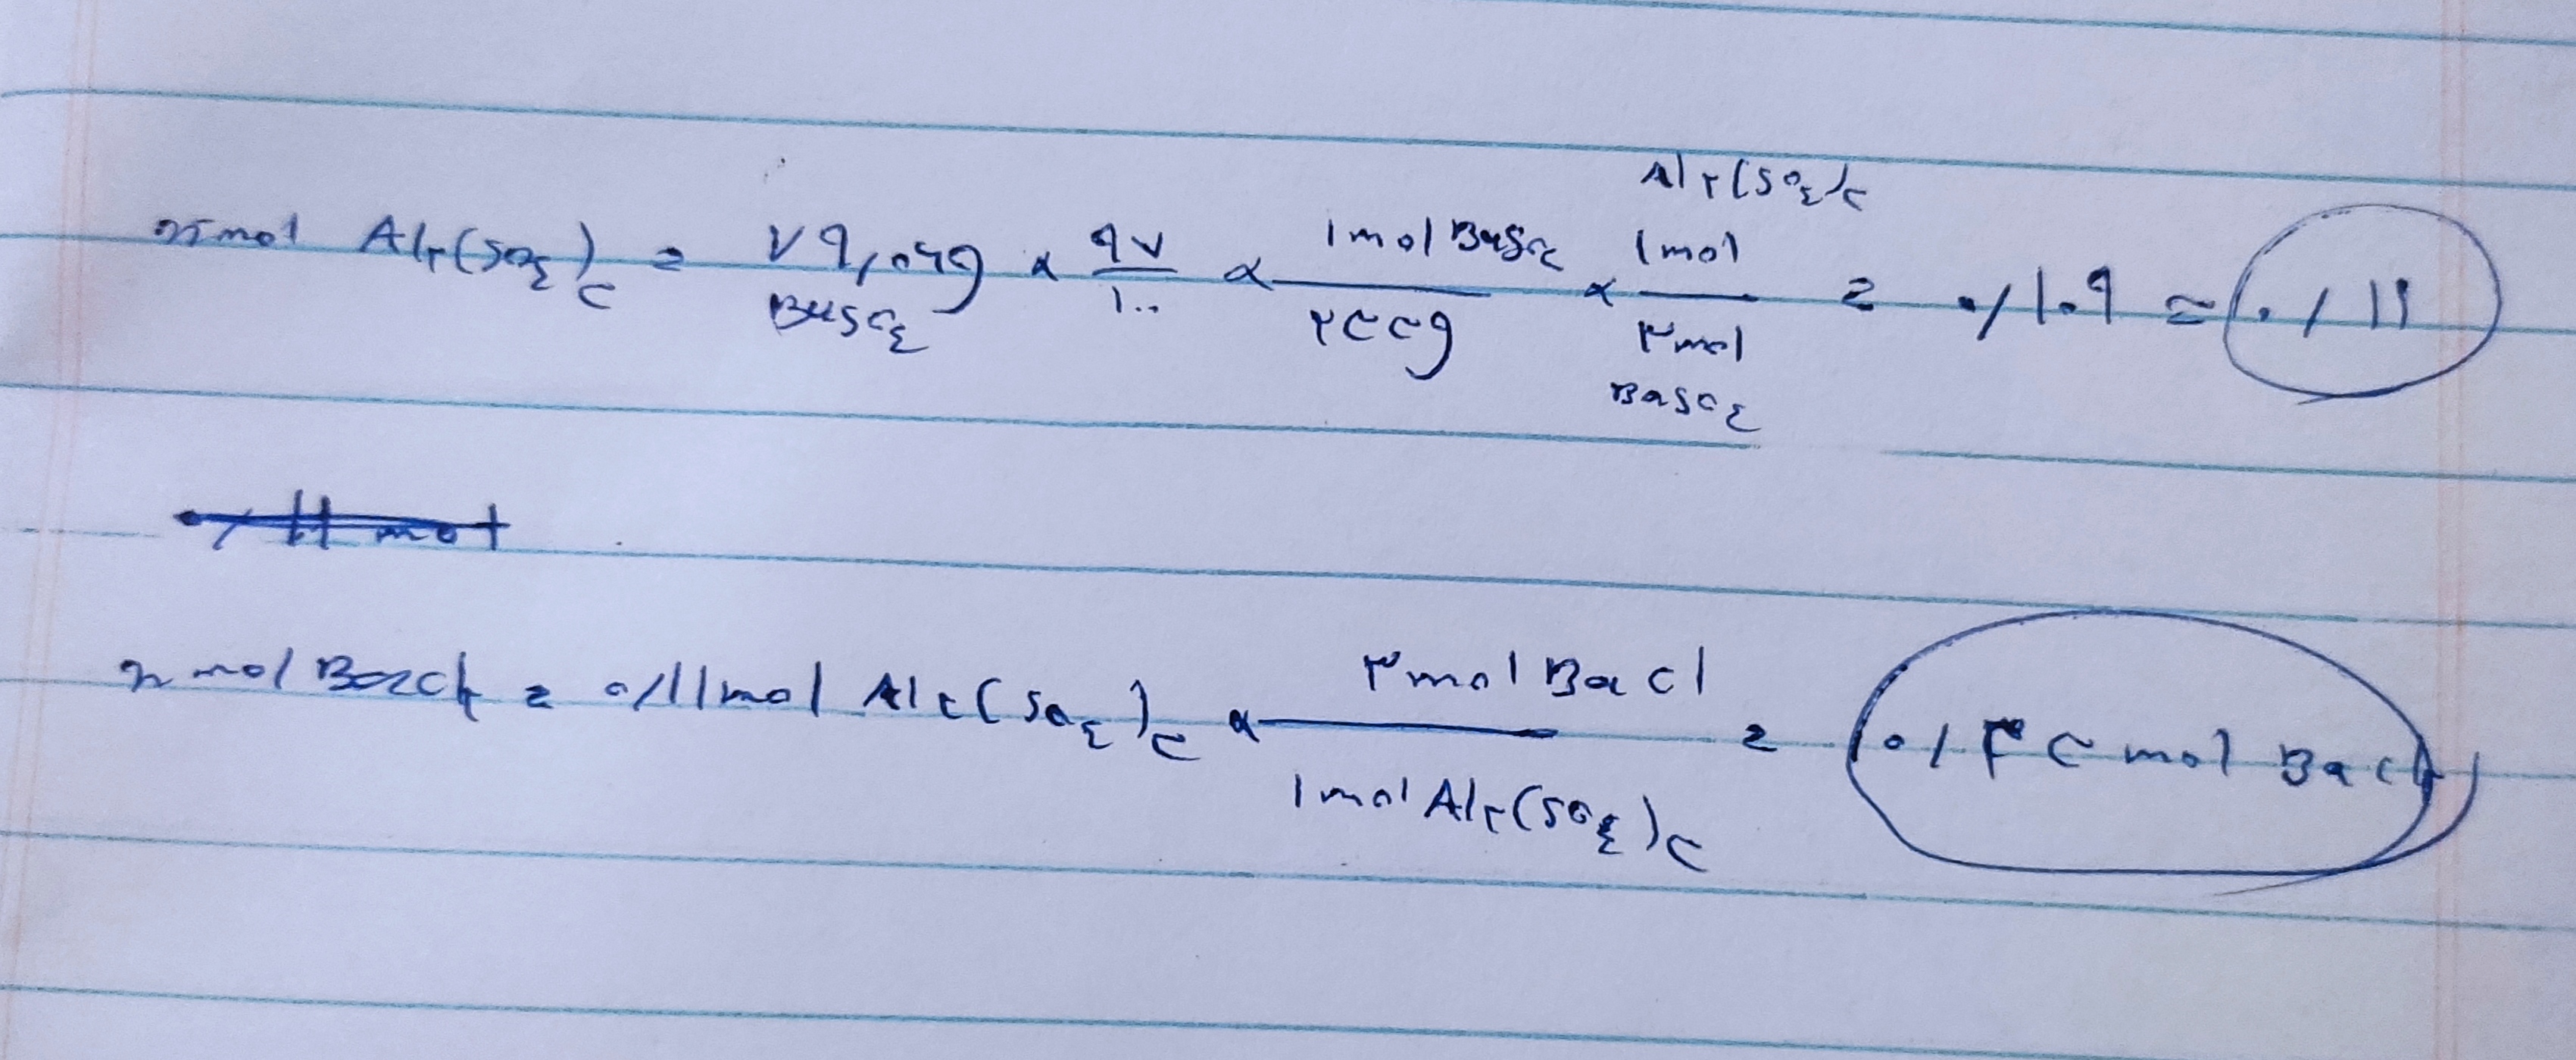 mol Al۲(SO۴)۳ = ۷۹,۰۶g BaSO۴ × ۹۷/۱۰۰ × ۱mol BaSO۴/۲۳۳g × ۱mol Al۲(SO۴)۳/۳mol BaSO۴ = ۰/۱۰۹ ≈ ۰/۱۱
۰/۱۱ mol
mol BaCl۲ = ۰/۱۱mol Al۲(SO۴)۳ × ۳mol BaCl/۱mol Al۲(SO۴)۳ = ۰/۳۳ mol BaCl۲